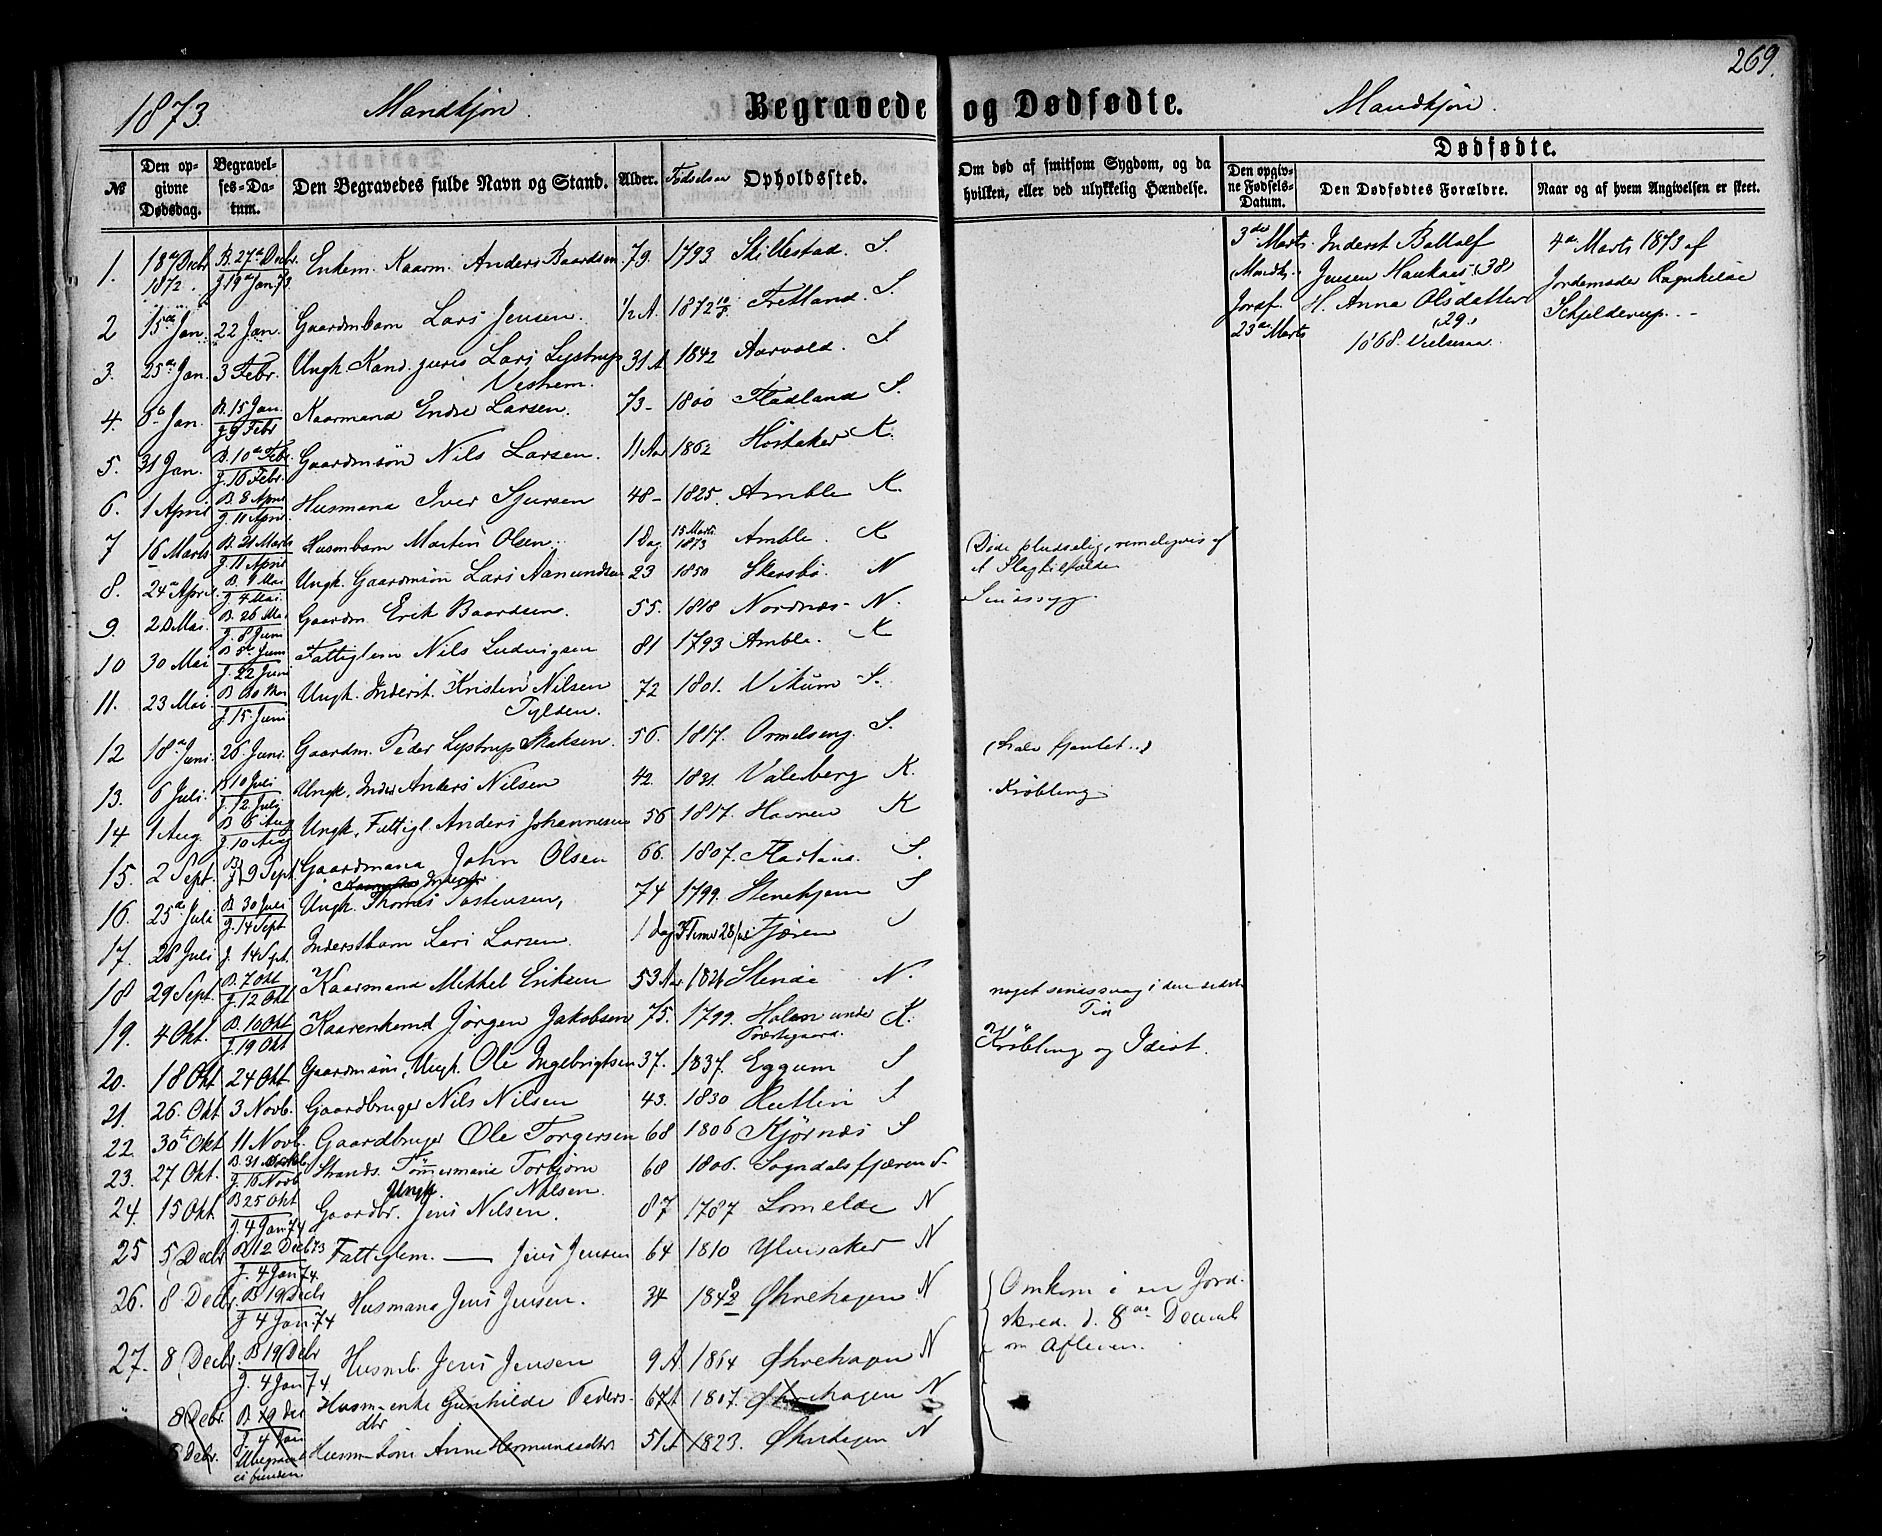 269.
1873. Mandkjøn. Begravede og Dødfødte. Mandkjøn.
Dødfødte.
№ Den opgivne Dødsdag. Begravelses-Datum. Den Begravedes fulde Navn og Stand. Alder. Fødselsaar Opholdssted. Om død af smitsom Sygdom, og da hvilken, eller ved ulykkelig Hændelse. Den opgivne Fødsels-Datum. Den Dødfødtes Forældre. Naar og af hvem Angivelsen er skeet.
1. 18de Decbr 1872. B. 27de Decbr. J. 19de Jan. 73. Enkem. Kaarm. Anders Baardsen 79. 1793. Skillestad. S.
3die Marts. Inderst Jensen Haukaas (38) H. Anna Olsdatter (29) 1868. 4de Marts 1873 af Jordemoder Ragnhilde Schjelderup.
23de Marts
2 15de Jan. 22 Jan. Gaardmbarn Lars Jensen. ½ A. 1872 Fretland. S.
3. 25de Jan. 3 Febr. Ungk. Kand. juris Lars Lystrup Neshem. 31 A 1842 Aarvold. S
4. Jan. B. 15 Jan. J. 9 Febr Kaarmand Endre Larsen. 73 - 1800 Fladland S.
5. 31 Jan. B. 10de Febr. J. 16 Febr. Gaardmsøn Nils Larsen. 11 Aar 1862 K.
6. 1 April B. 8 April J. 11 April. Husmand Iver Sjursen 48 - 1825. Amble K.
7 16 Marts B. 21 Marts J. 11 April Husmbarn Martin Olsen. 1 Dag 15 Marts 1873 Amble. K
8. 24de April B. 1 Mai J. 4 Mai. Ungk. Gaardmsøn Lars Aamundsen 23 1850 Skersbø. N Døde pludselig, rimeligvis af et Slagtilfælde
9. 20 Mai. B. 26 Mai J. 8 Juni Gaardm. Erik Baardsen. 55. 1818 Nordnæs. N. Sindssyg.
10 30 Mai B. 5 Juni J. 22 Juni Fattiglem Nils Ludvigsen 81 1793 Amble. K
11. 23 Mai. B. 30 Mai J. 15 Juni Ungk. Inderst. Kristen Nilsen Tylden. 72 1801. Vikum S.
12 18de Juni. 26 Juni. Gaardm. Peder Lystrup Skaksen. 56. 1817. Ormelseng. S. (halv fjantet..)
13. 6 Juli. B 10 Juli J. 12 Juli Ungk. Inder. Anders Nilsen 42. 1831. Valeberg K. Krøbling
14 1 Aug. B 6 Aug J. 10 Aug Ungk. Fattigl. Anders Johannesen 56 1817. Havnen K
15. 2 Sept. B. J. 9 Sept. Gaardmand John Olsen 66. 1807. S.
16. 25de Juli B. 30 Juli J. 14 Sept Ungk. Inderst Thomas Tostensen, 74 1799. Stenehjem S
17. 28 Juli J. 14 Sept. Inderstbarn Lars Larsen 1 Dag Fjæren S
18 29 Sept. B. 7 Okt J. 12 Okt Kaarmand Mikkel Eriksen 53 Aar 1820 N. noget sindssvag i den sidste Tid
19. 4 Okt. B. 10 Okt J. 19 Okt Kaarenkemd Jørgen Jakobsen 75. 1799. Holen under Præstegaard. K.
20. 18 Okt 24 Okt Gaardmsøn, Ungk. Ole Ingebrigtsen 37. 1837. Eggum S Krøbling og Idiot.
21. 26. Okt 3 Novb. Gaardbruger Nils Nilsen 43. 1830 Ruttlin S
22. 30te Okt 11 Novb. Gaardbruger Ole Torgersen 68 1806 Kjørnæs S
23. 27 Okt. B. 31 J. 16 Novb Strands. Tømmermand Torbjørn Nilsen. Ungk. 68 1806. Sogndalsfjæren S.
24. 15 Okt B 25 Okt J. 4 Jan 74 Gaardbr. Jens Nilsen. 87 1787 Lomelde N
25 5 Decbr B 12 Decb 73 J. 4 Jan 74. Fattiglem. — Jens Jensen 64 1810 Ylvisaker N
26. 8. Decbr. B 19 Decbr J. 4 Jan 74 Husmand Jens Jensen. 34 Øhrehagen N Omkom i en Jordskred. d. 8de Decemb om Aftenen.
27. 8 Decbr. B 19 Decbr J. 4 Jan 74 Husmb. Jens Jensen 9 A 1864 Øhrehagen N
8 Decbr B. 19 Dec J. 4 Jan Husm-enke Gunhilde Pedersdtr 67 A 1807. Øhrehagen N
8 Decbr. Ubegravet ei funden Husm-kone Anne Hermundsdtr 51 A 1823. Øhrehagen N